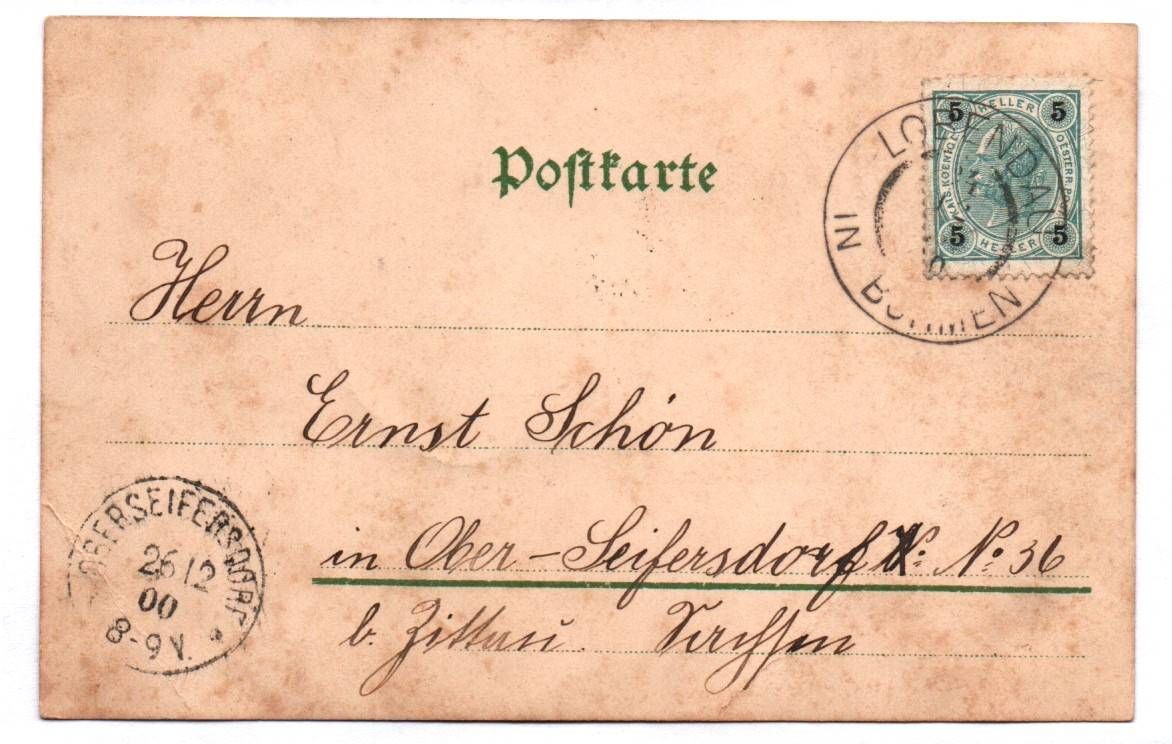 Postkarte
5 HELLER 5
KAIS. KOENIGL. OESTERR. P
5 HELLER 5
IN BÖHMEN
Herrn
Ernst Schön
in Ober-Seifersdorf No 36
b. Zittau Sachsen
OBERSEIFERSDORF
26 12
00
8-9 V.